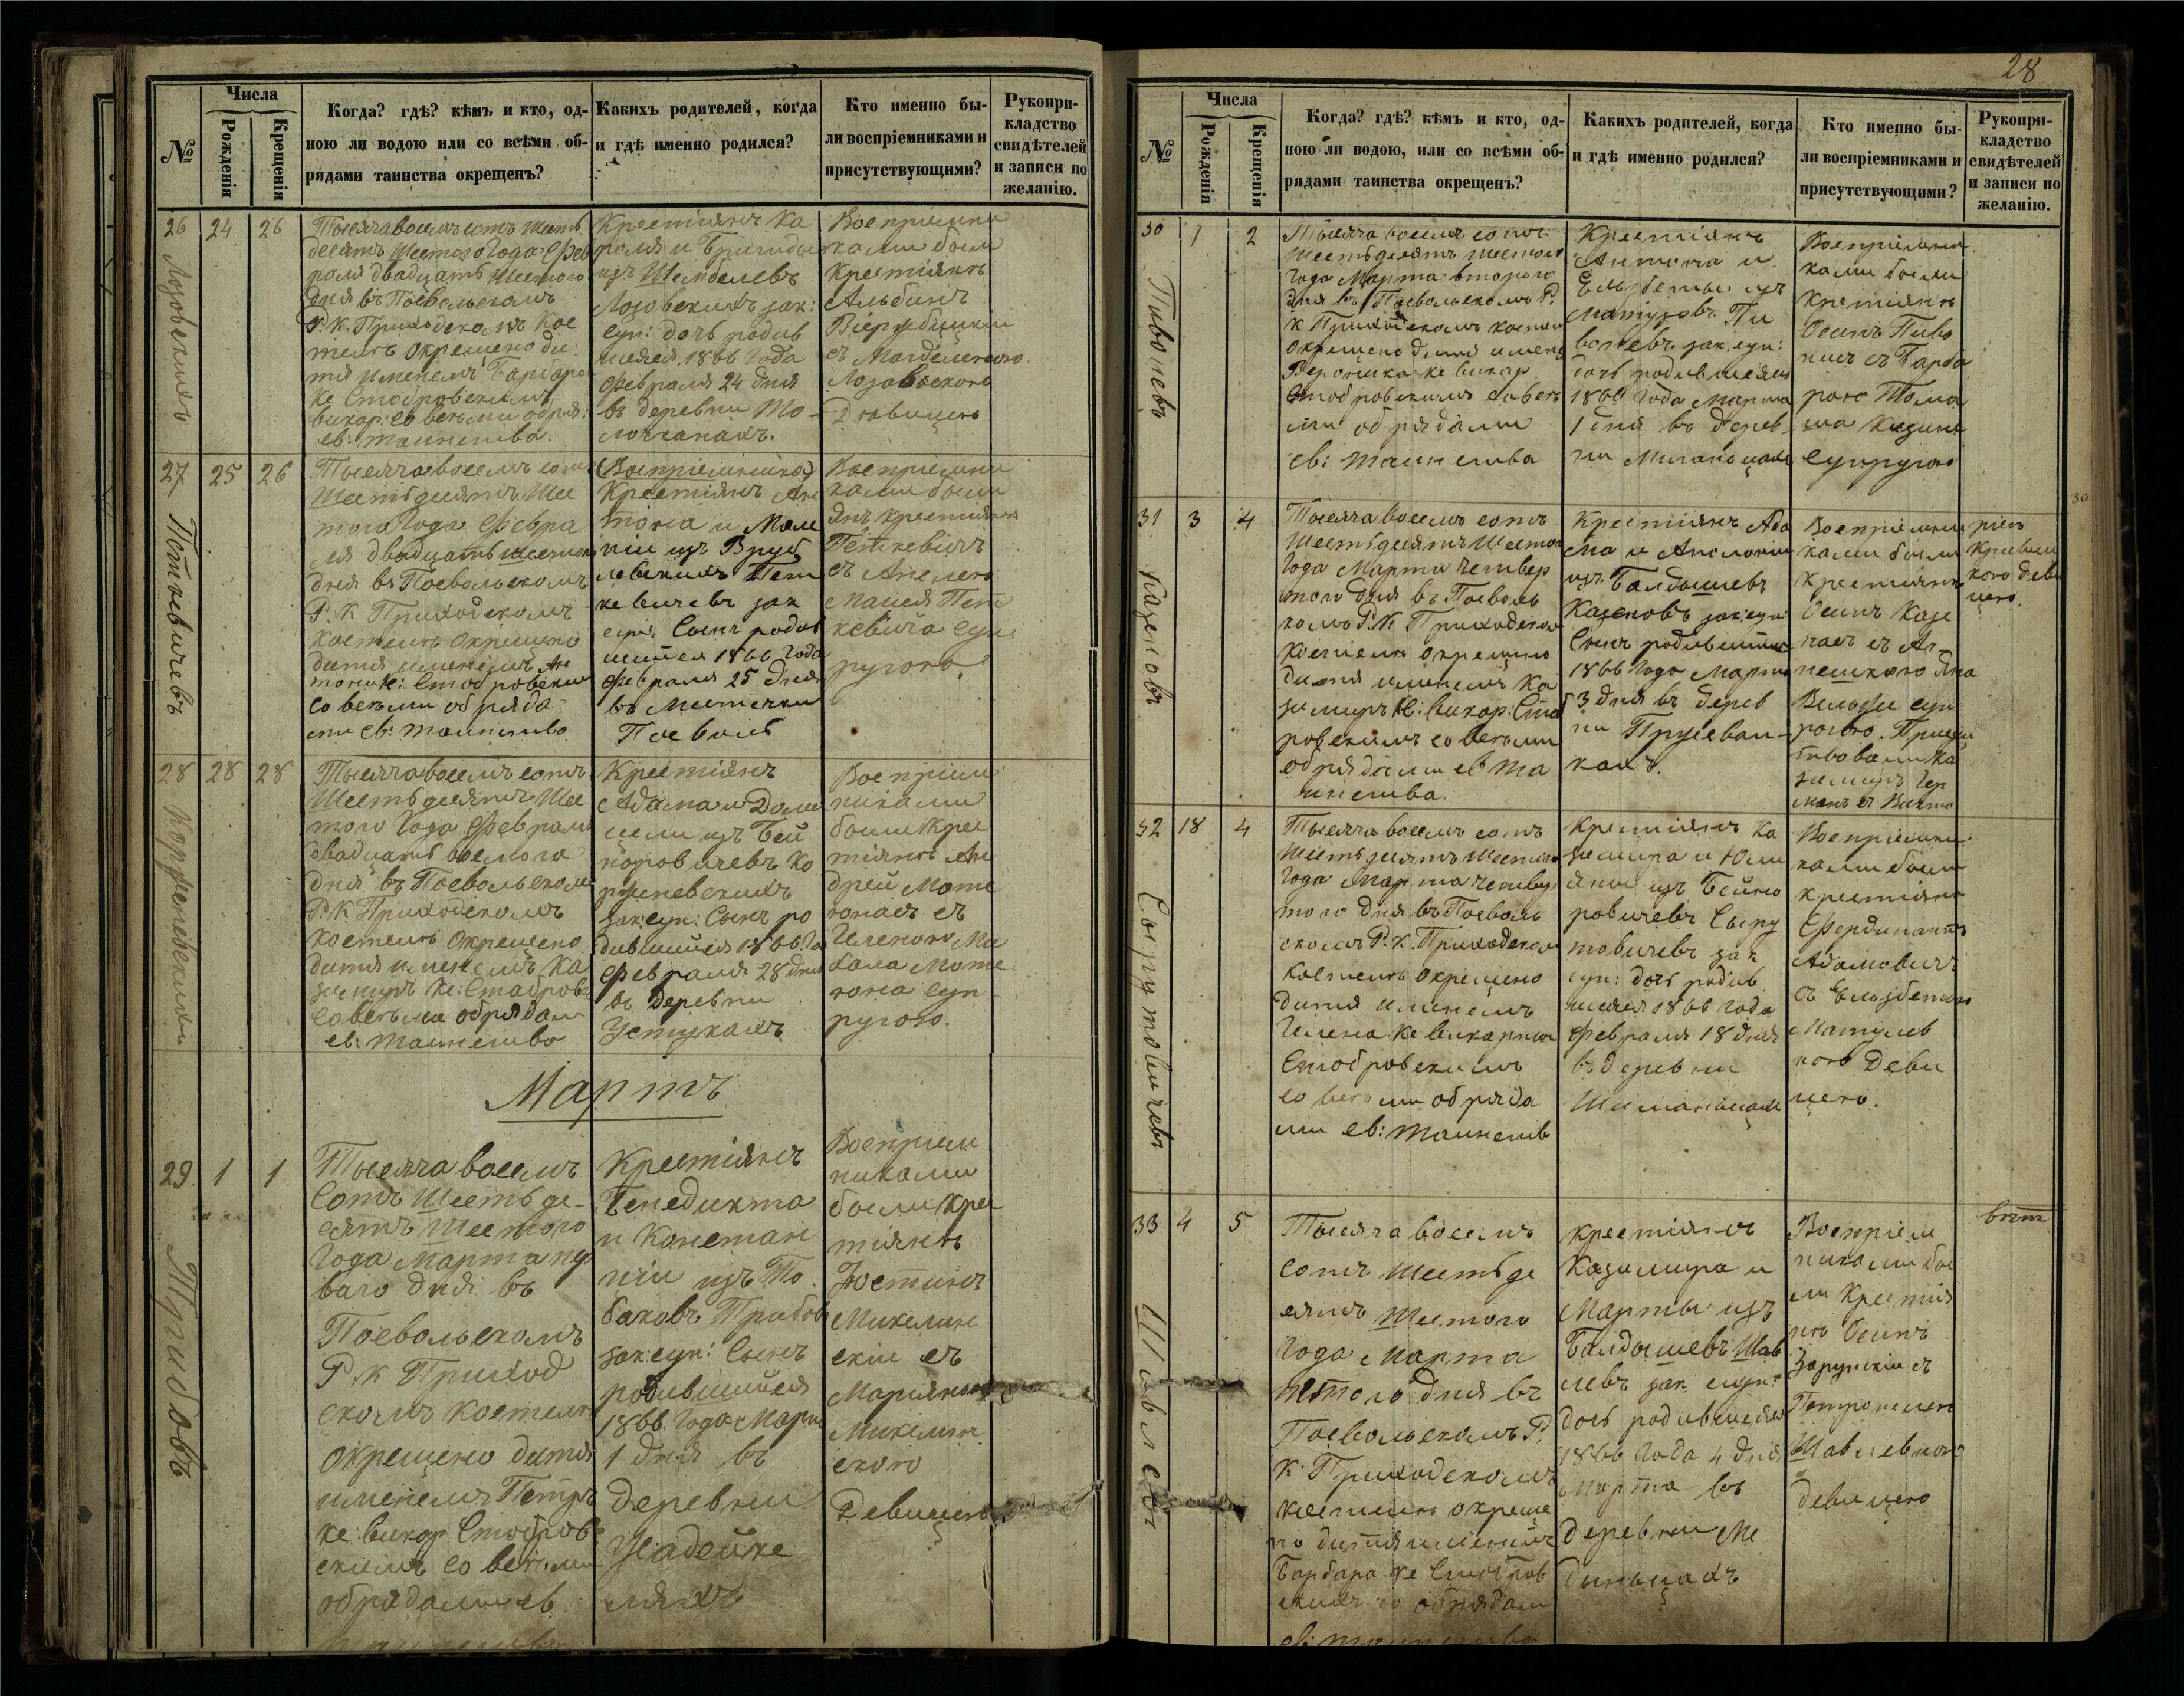 №
Числа
Рожденія
Крещенія
Когда? гдѣ? кѣмъ и кто, од-
ною ли водою или со всѣми об-
рядами таинства окрещенъ?
Какихъ родителей, когда
и гдѣ именно родился?
Кто именно бы-
ли воспріемниками и
присутствующими?
Рукопри-
кладство
свидѣтелей
и записи по
желанію.
26
24
26
Лозовскихъ
Тысяча восемь сотъ шесть
десятъ шестого года Фев
раля двадцать шестого
дня въ Посвольскомъ
Р. К. Приходскомъ Кос
телѣ окрещено ди
тя именемъ Барбара
Кс Стобровскимъ
викар: со всѣми обря:
св: таинства.
Крестіянъ Ка
роля и Бригиды
изъ Шембелевъ
Лозовскихъ зак:
суп: дочь родив
шаяся 1866 года
Февраля 24 дня
въ деревни То-
лочканахъ.
Воспріемни
ками были
Крестіянъ
Альбинъ
съ Магделеною
Лозовскою
Дѣвицею
27
25
26
Петкевичевъ
Тысяча восемь сотъ
шестьдесятъ шес
того года Февра
ля двадцать шестого
дня въ Посвольскомъ
Р. К Приходскомъ
костелѣ окрещено
дитя именемъ Ан
тони Кс: Стобровским
со всѣми обряда
ми св: таинства
(Воспріемники)
Крестіянъ Ан
тона и Мале
ніи изъ Вруб
левскихъ Пет
кевичевъ зак
суп: Сынъ родив
шійся 1866 года
Февраля 25 дня
въ Местечки
Посволь
Воспріемни
ками были
Янъ крестіянъ
Петкевичъ
съ Анелею
Мацея Пет
кевича суп
ругою.
28
28
28
Корженевскихъ
Тысяча восемь сотъ
шестьдесятъ шес
того года Февраля
двадцать восмого
дня въ Посвольскомъ
Р. К Приходскомъ
костелѣ окрещено
дитя именемъ Ка
зимиръ Кс: Стобров
со всѣми обрядам
св: таинства
Крестіянъ
Адама и Доми
цели изъ Бей
норовичевъ Ко
рженевскихъ
зак: суп: Сынъ ро
дившійся 1866 го
Февраля 28 дня
въ деревни
Устукахъ
Воспріем
никами
были Крес
тіянъ Ан
дрей Моте
юнасъ съ
Геленою Ми
хала Моте
юна суп
ругою.
Мартъ
29
1
1
Тригбовъ
Тысяча восемь
сотъ шестьде-
сятъ шестого
года Марта пер
ваго дня въ
Посвольскомъ
Р. К Приход
скомъ костелѣ
окрещено дитя
именемъ Петръ
Кс. Викар Стобров
скимъ со всѣми
обрядами св
Крестіянъ
Бенедикта
и Констан
ціи изъ То
баковъ
зак: суп: Сынъ
родившійся
1866 года Марта
1 дня въ
деревни
Надейке
ляхъ
Воспріем
никами
были Крес
тіянъ
Юстинъ
Микелин
скій съ
Маріяною
Микелин
скою
Девицею
28
№
Числа
Рожденія
Крещенія
Когда? гдѣ? кѣмъ и кто, од-
ною ли водою, или со всѣми об-
рядами таинства окрещенъ?
Какихъ родителей, когда
и гдѣ именно родился?
Кто именно бы-
ли воспріемниками и
присутствующими?
Рукопри-
кладство
свидѣтелей
и записи по
желанію.
30
1
2
Пивоневъ
Тысяча восемь сотъ
шестьдесятъ шестого
года Марта второго
дня въ Посвольскомъ Р.
К Приходскомъ костел
окрещено дитя имене
Вероника Кс викар
Стобровскимъ со всѣ
ми обрядами
св: таинства
Крестіянъ
Антона и
Ельзбеты изъ
Матузовъ Пи
воневъ зак: суп:
дочь родившаяся
1866 года Марта
1 дня въ дерев
ни
Воспріемни
ками были
крестіянъ
Осипъ Пиво
нисъ съ Барба
рою Тома
ша
супругою
31
3
4
Казеновъ
Тысяча восемь сотъ
шестьдесятъ шестог
года Марта четвер
того дня въ Посволь
комъ Р. К Приходском
костелѣ окрещено
дитя именемъ Ка
зимиръ Кс: викар: Стоб
ровскимъ со всѣми
обрядами св та
инства.
Крестіянъ Ада
ма и Аполоніи
изъ Балдышевъ
Казеновъ зак: суп:
Сынъ родившійся
1866 года Марта
3 дня въ дерев
ни Прусеван-
кахъ.
Воспріемни
ками были
крестіянъ
Осипъ Казе
насъ съ Аг-
нешкою Яна
суп
ругою. Присут
ствовали Ка
зимиръ Гер
манъ съ Викто
ріею
Кривиц
кою деви
цею.
30
32
18
4
Сырутовичевъ
Тысяча восемь сотъ
шестьдесятъ шестого
года Марта четвер
того дня въ Посволь
скомъ Р. К. Приходском
костелѣ окрещено
дитя именемъ
Гелена Кс викаріем
Стобровскимъ
со всѣми обряда
ми св: таинств
Крестіянъ Ка
зимира и Юли
яны изъ Бейно
ровичевъ Сыру
товичевъ зак
суп: дочь родив
шаяся 1866 года
Февраля 18 дня
въ деревни
Шиманцахъ
Воспріемни
ками были
крестіянъ
Фердинантъ
Адамовичъ
съ Ельзбетою
Матулев
ною Деви
цею.
33
4
5
Шавлевъ
Тысяча восемь
сотъ шестьде
сятъ шестого
года Марта
пятого дня въ
Посвольскомъ Р.
К. Приходскомъ
костелѣ окреще
но дитя именемъ
Барбара Кс Стобров
скимъ со обрядами
св: таинства
крестіянъ
Казимира и
Марты изъ
Балдышевъ Шав
левъ зак. суп:
дочь родившаяся
1866 года 4 дня
Марта въ
деревни Ме
Воспріем
никами бы
ли Крестія
нъ Осипъ
съ
Петронелею
Шавлевною
девицею